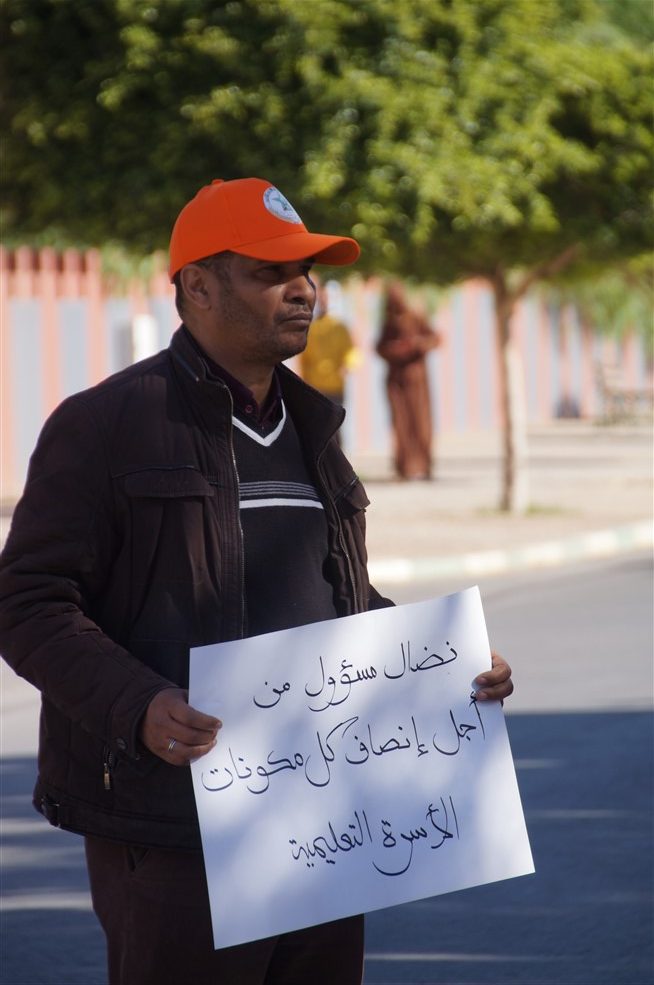 نضال مسؤول من
أجل إنصاف كل مكونات
الأسرة التعليمية